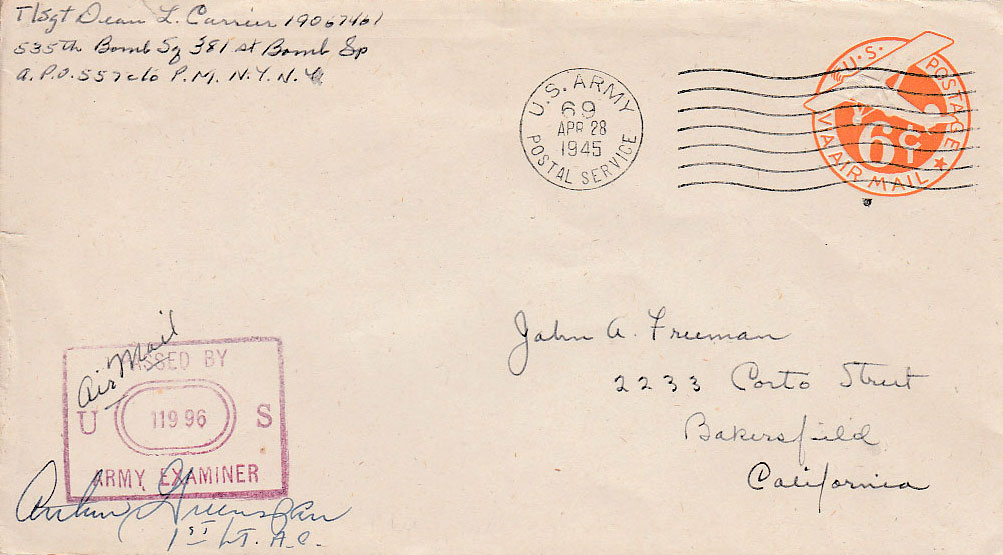 T/Sgt Dean L. Carrier 19067461
535th Bomb Sq 381st Bomb Gp
A.P.O. 557 c/o P.M. N.Y. N.Y.
U.S. ARMY
69
APR 28
1945
POSTAL SERVICE
U.S. POSTAGE
6¢
VIA AIR MAIL
Air Mail
PASSED BY
U 11996 S
ARMY EXAMINER
Arthur Greenspan
1ST LT. A.C.
John A. Freeman
2233 Corto Street
Bakersfield
California